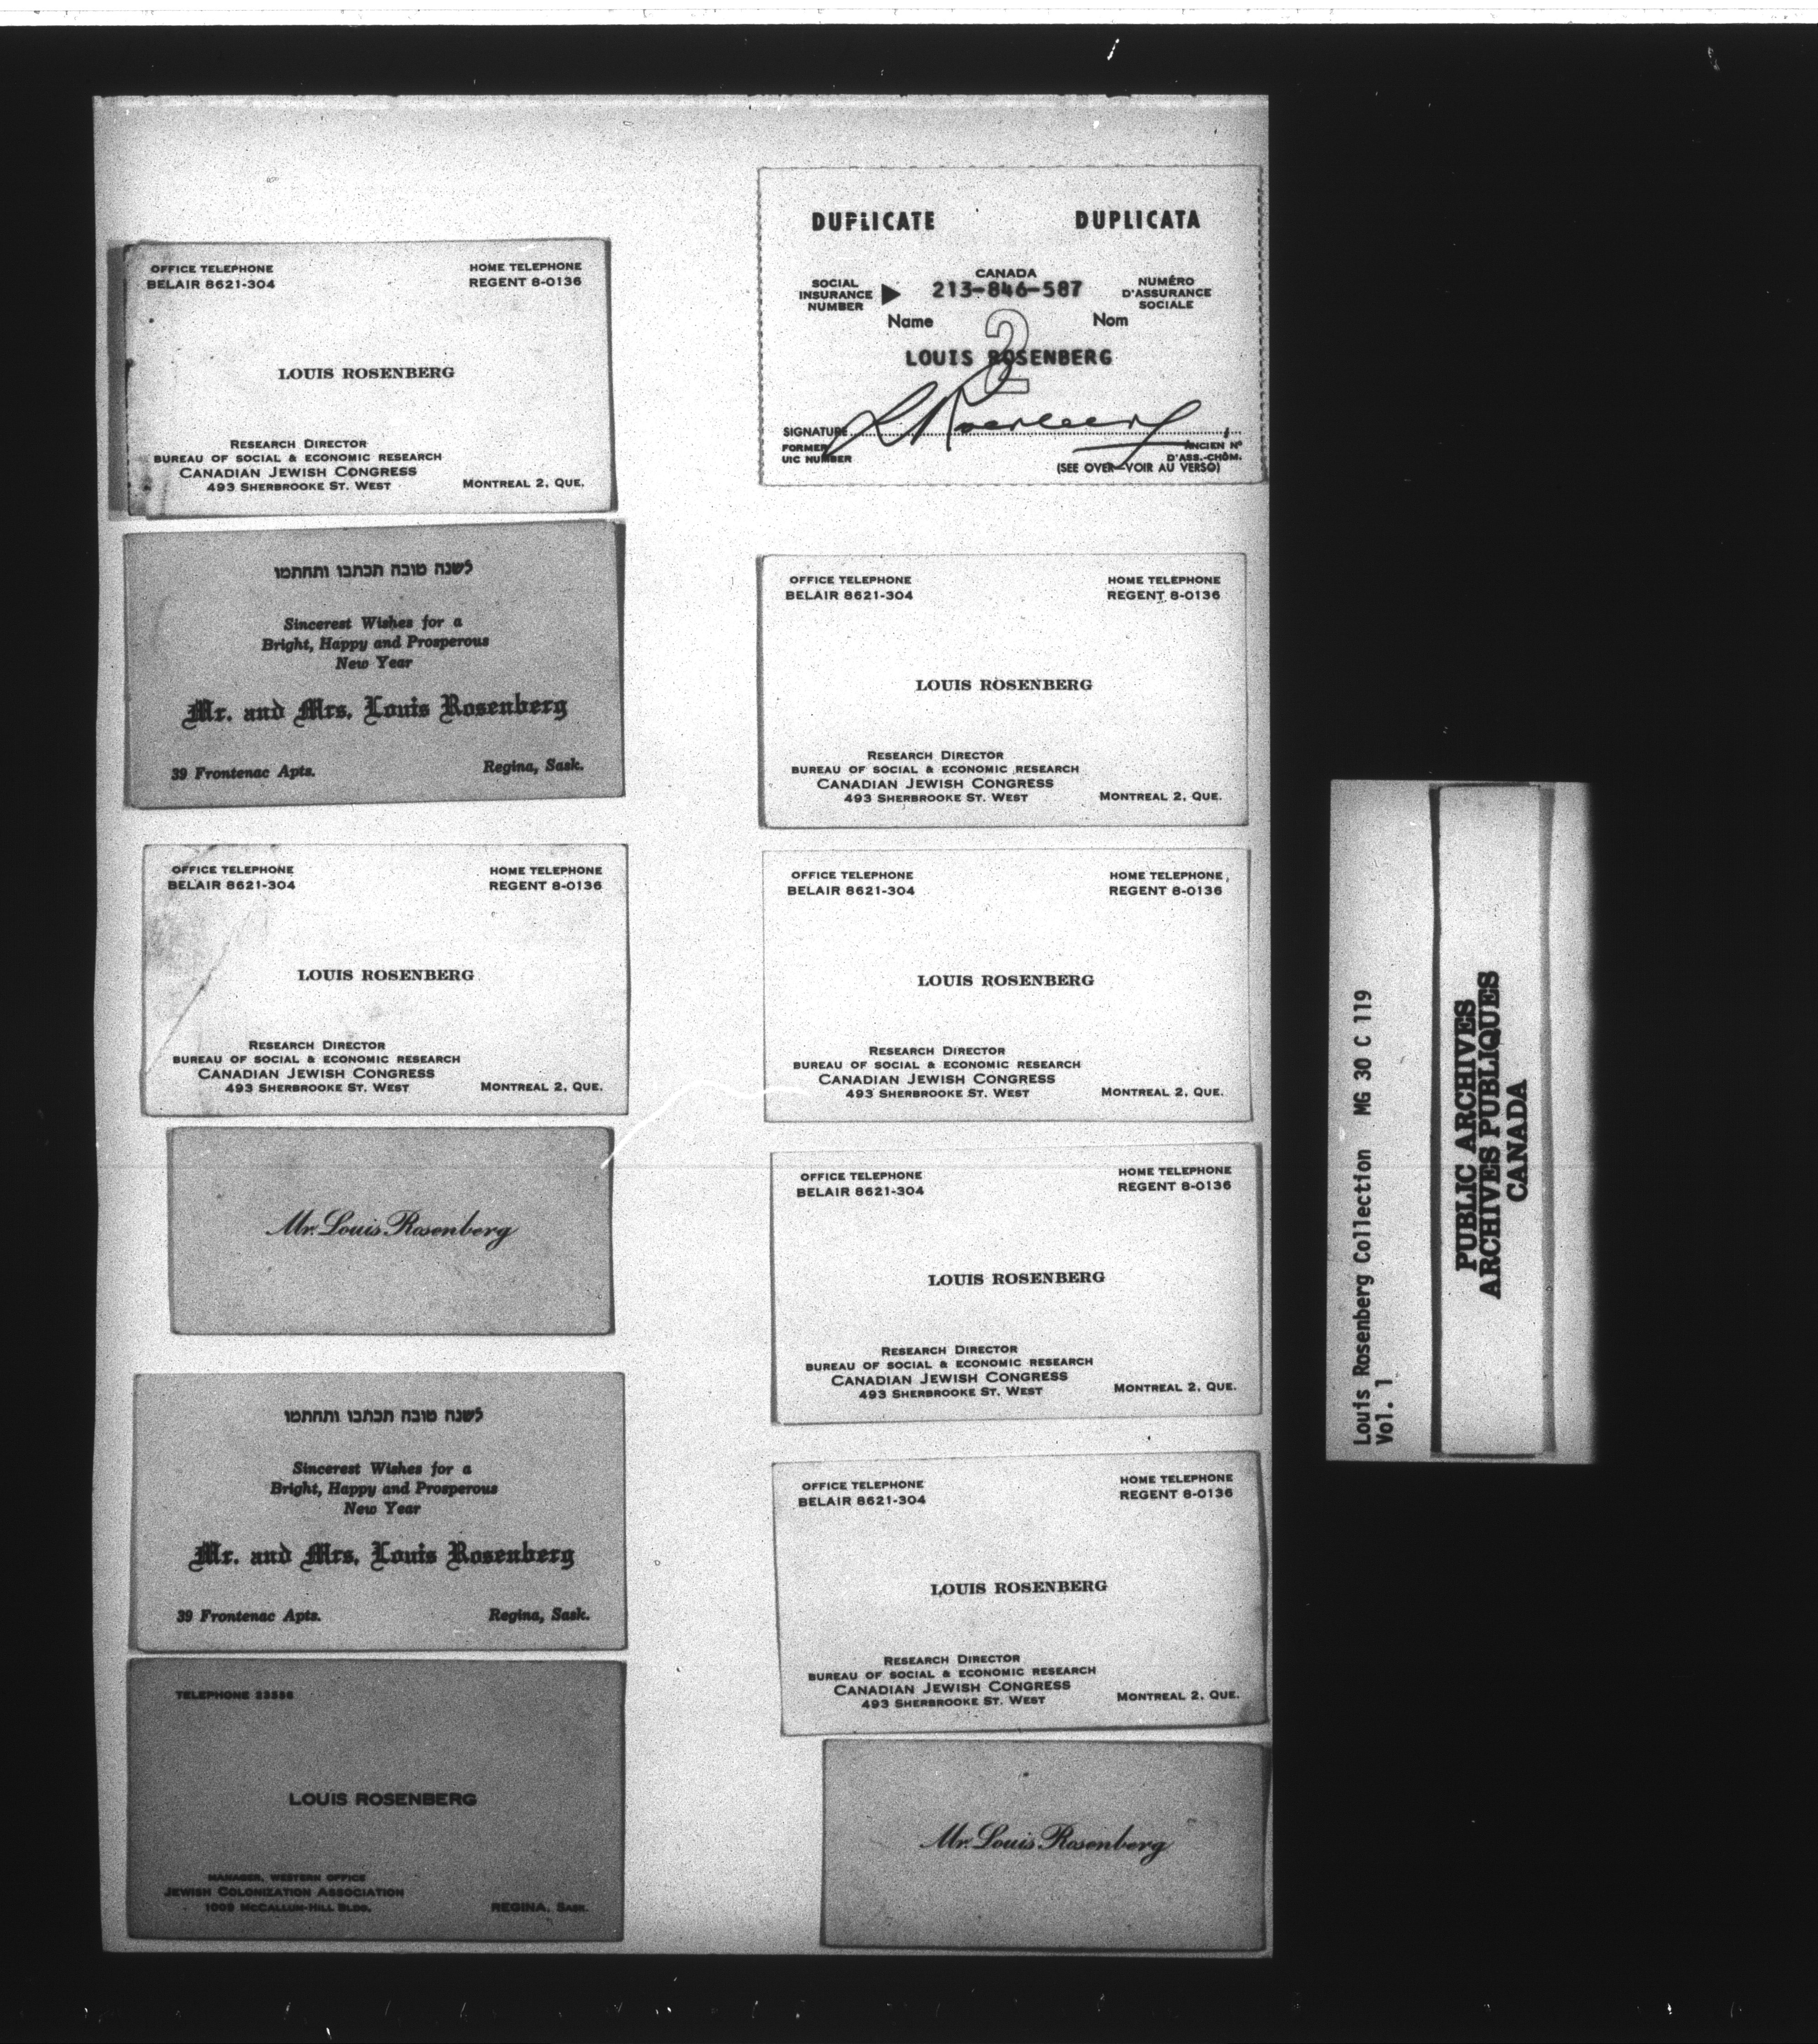 OFFICE TELEPHONE HOME TELEPHONE
BELAIR 8621-304 REGENT 8-0136
LOUIS ROSENBERG
RESEARCH DIRECTOR
BUREAU OF SOCIAL & ECONOMIC RESEARCH
CANADIAN JEWISH CONGRESS
493 SHERBROOKE ST. WEST MONTREAL 2, QUE.
לשנה טובה תכתבו ותחתמו
Sincerest Wishes for a
Bright, Happy and Prosperous
New Year
Mr. and Mrs. Louis Rosenberg
39 Frontenac Apts. Regina, Sask.
OFFICE TELEPHONE HOME TELEPHONE
BELAIR 8621-304 REGENT 8-0136
LOUIS ROSENBERG
RESEARCH DIRECTOR
BUREAU OF SOCIAL & ECONOMIC RESEARCH
CANADIAN JEWISH CONGRESS
493 SHERBROOKE ST. WEST MONTREAL 2, QUE.
Mr. Louis Rosenberg
לשנה טובה תכתבו ותחתמו
Sincerest Wishes for a
Bright, Happy and Prosperous
New Year
Mr. and Mrs. Louis Rosenberg
39 Frontenac Apts. Regina, Sask.
TELEPHONE
LOUIS ROSENBERG
MANAGER, WESTERN OFFICE
JEWISH COLONIZATION ASSOCIATION
1009 MCCALLUM-HILL BLDG. REGINA, SASK.
DUPLICATE DUPLICATA
CANADA
SOCIAL INSURANCE NUMBER 213-846-587 NUMÉRO D'ASSURANCE SOCIALE
Name Nom
2
LOUIS ROSENBERG
SIGNATURE L Rosenberg
FORMER UIC NUMBER ANCIEN Nº D'ASS.-CHÔM.
(SEE OVER—VOIR AU VERSO)
OFFICE TELEPHONE HOME TELEPHONE
BELAIR 8621-304 REGENT 8-0136
LOUIS ROSENBERG
RESEARCH DIRECTOR
BUREAU OF SOCIAL & ECONOMIC RESEARCH
CANADIAN JEWISH CONGRESS
493 SHERBROOKE ST. WEST MONTREAL 2, QUE.
OFFICE TELEPHONE HOME TELEPHONE
BELAIR 8621-304 REGENT 8-0136
LOUIS ROSENBERG
RESEARCH DIRECTOR
BUREAU OF SOCIAL & ECONOMIC RESEARCH
CANADIAN JEWISH CONGRESS
493 SHERBROOKE ST. WEST MONTREAL 2, QUE.
OFFICE TELEPHONE HOME TELEPHONE
BELAIR 8621-304 REGENT 8-0136
LOUIS ROSENBERG
RESEARCH DIRECTOR
BUREAU OF SOCIAL & ECONOMIC RESEARCH
CANADIAN JEWISH CONGRESS
493 SHERBROOKE ST. WEST MONTREAL 2, QUE.
OFFICE TELEPHONE HOME TELEPHONE
BELAIR 8621-304 REGENT 8-0136
LOUIS ROSENBERG
RESEARCH DIRECTOR
BUREAU OF SOCIAL & ECONOMIC RESEARCH
CANADIAN JEWISH CONGRESS
493 SHERBROOKE ST. WEST MONTREAL 2, QUE.
Mr. Louis Rosenberg
Louis Rosenberg Collection MG 30 C 119
Vol. 1
PUBLIC ARCHIVES
ARCHIVES PUBLIQUES
CANADA